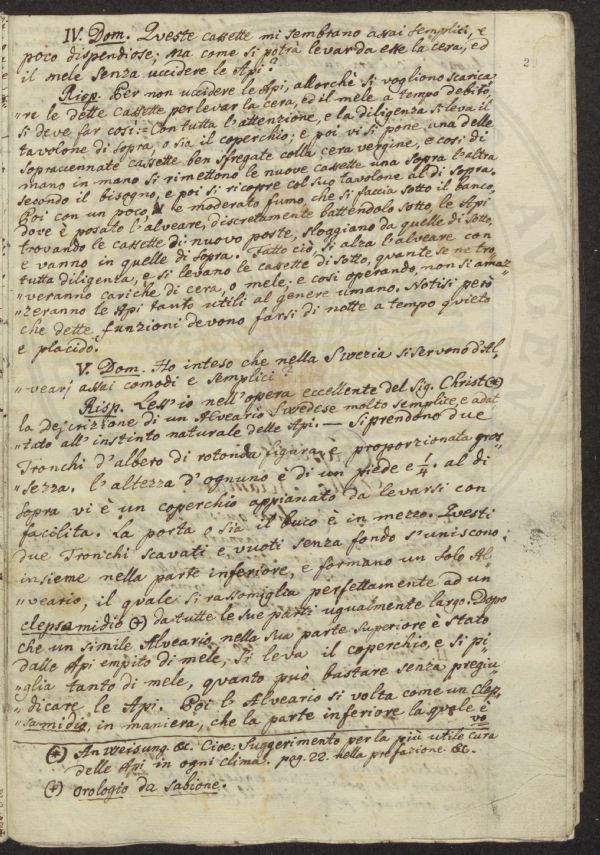 IV. Dom. Queste cassette mi sembrano assai semplici, e
poco dispendiose; ma come si potrà levar da esse la cera, ed
il mele senza uccidere le Api?
Risp. Per non uccidere le Api, allorchè si vogliono scarica
"re le dette cassette per levar la cera, ed il mele a tempo debito,
si deve far così: = Con tutta l'attenzione, e la diligenza si leva il
tavolone di sopra, o sia il coperchio; e poi vi si pone una delle
sopracennate cassette ben sfregate colla cera vergine, e così di
mano in mano si rimettono le nuove cassette una sopra l'altra
secondo il bisogno, e poi si ricopre col suo tavolone al di sopra.
Poi con un poco, e moderato fumo, che si faccia sotto il banco,
dove è posato l'alveare, discretamente battendolo sotto, le Api
trovando le cassette di nuovo poste, sloggiano da quelle di sotto,
e vanno in quelle di sopra. Tutto ciò, si alza l'alveare con
tutta diligenza, e si levano le cassette di sotto, quante se ne tro,
"veranno cariche di cera, o mele; e così operando, non si amaz
"zeranno le Api tanto utili al genere umano. Notisi però
che dette funzioni devono farsi di notte a tempo quieto
e placido.
V. Dom. Ho inteso che nella Swezia si servono d'Al,
"vearj assai comodi e semplici?
Risp. Less'io nell'opera eccellente del Sig. Christ (+)
la descrizione di un Alveario Swedese molto semplice, e adat
"tato all'instinto naturale delle Api. — Si prendono due
Tronchi d'albero di rotonda figura, e proporzionata gros
"sezza. l'altezza d'ognuno è di un piede e 1/4. al di
sopra vi è un coperchio appianato da levarsi con
facilita. La porta o sia il buco è in mezzo. Questi
due Tronchi scavati e vuoti senza fondo s'uniscono
insieme nella parte inferiore, e formano un solo Al,
"veario, il quale si rassomiglia perfettamente ad un
clepsamidio (+) da tutte le sue parti ugualmente largo. Dopo
che un simile Alveario nella sua parte superiore è stato
dalle Api empito di mele, si leva il coperchio, e si pi
"glia tanto di mele, quanto può bastare senza pregiu
"dicare le Api. Poi l'Alveario si volta come un Clep,
"samidio, in maniera, che la parte inferiore la quale è
vo
(+) Anweisung &c. Cioe: Suggerimento per la più utile cura
delle Api in ogni clima. pag. 22. nella prefazione &c.
(+) Orologio da Sabione.
2